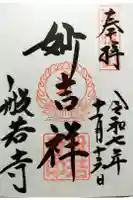 奉拝
令和七年
十一月十六日
妙吉祥
般若寺